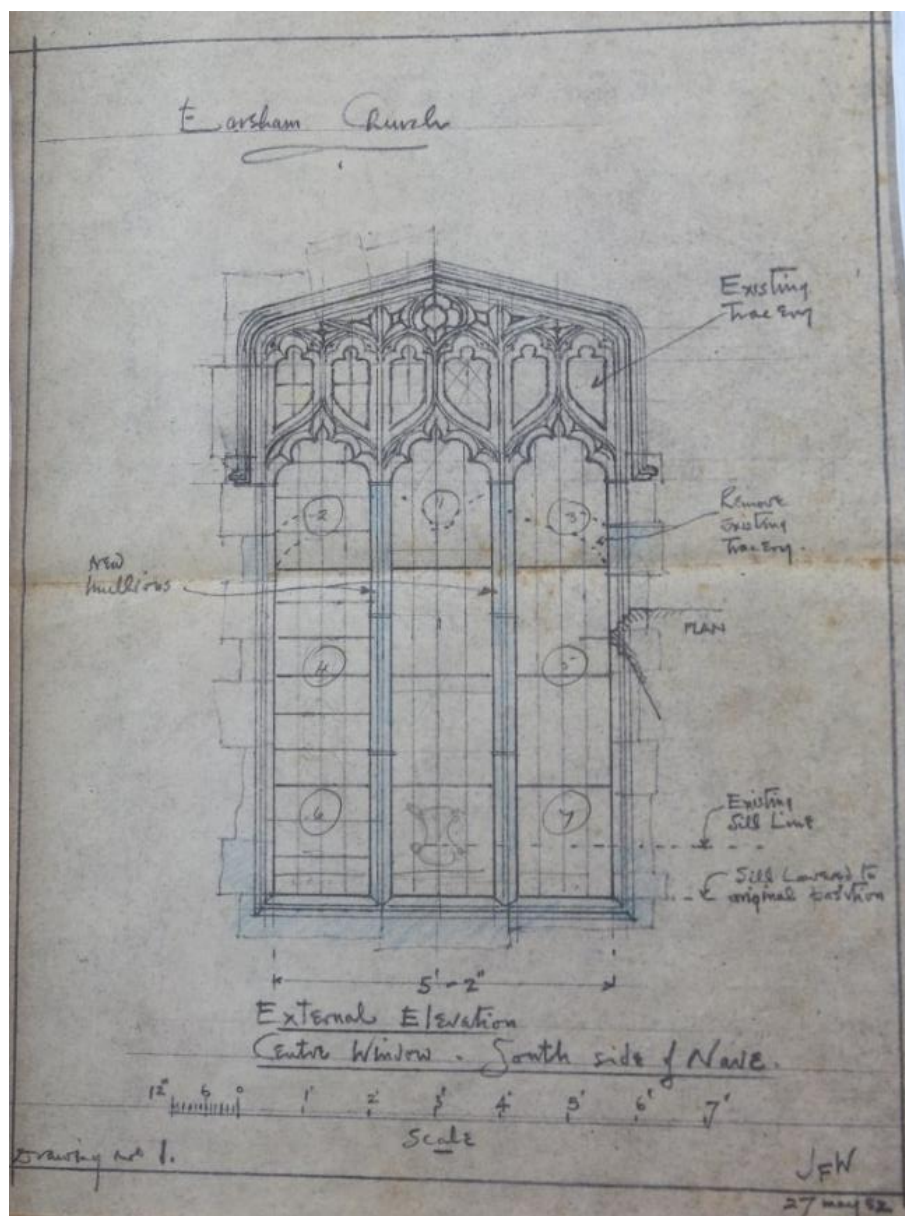 Earsham Church
Existing
Tracery
2
1
3
Remove
Existing
Tracery.
New
Mullions
PLAN
4
5
6
7
Existing
Sill Line
Sill Lowered to
original position
5'-2"
External Elevation
Centre Window. South side of Nave.
12" 6 0 1' 2' 3' 4' 5' 6' 7'
Scale
Drawing no 1.
JFW
27 may 52